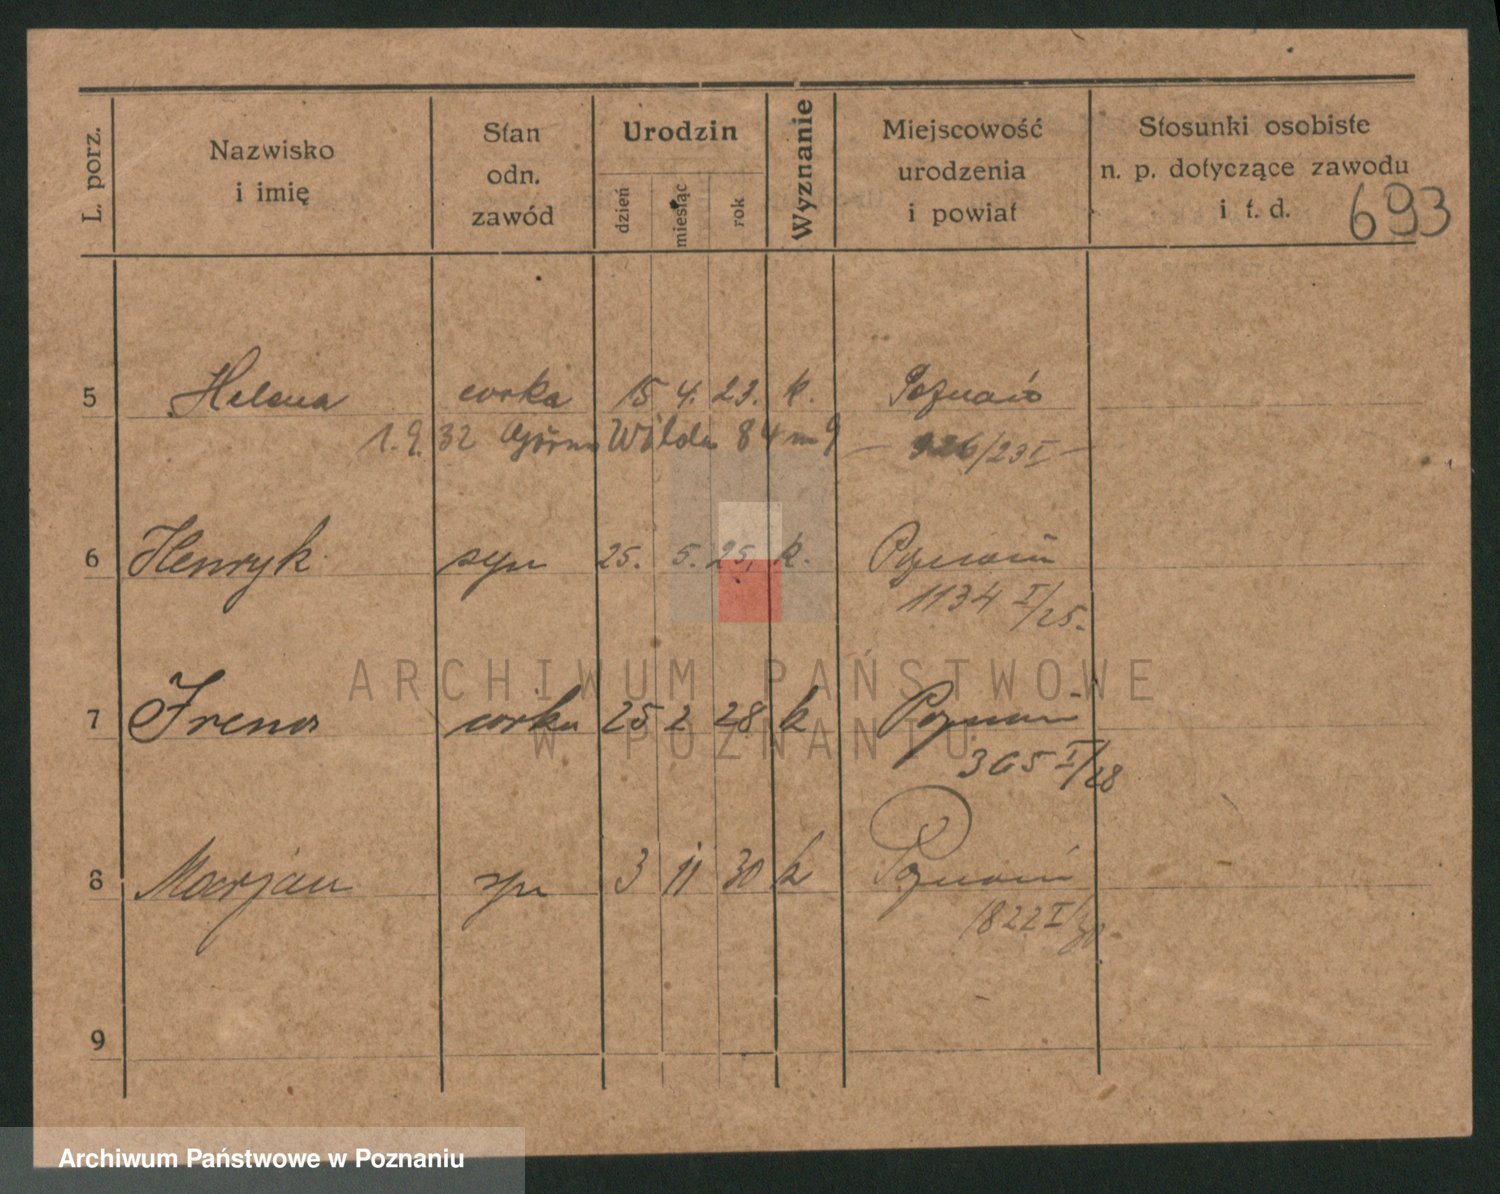 L. porz. Nazwisko i imię Stan odn. zawód Urodzin dzień miesiąc rok Wyznanie Miejscowość urodzenia i powiat Stosunki osobiste n. p. dotyczące zawodu i t. d.
693
5 Helena corka 15 4. 23. k. Poznań
1. 9. 32 Górna Wilda 84 m 9 — 926/23 I —
6 Henryk syn 25. 5. 25, k. Poznań
1134 I/25.
ARCHIWUM PAŃSTWOWE
7 Irena corka 25 2 28 k Poznań
W POZNANIU
365 I/28
8 Marjan syn 3 11 30 k Poznań
1822 I/30
9
Archiwum Państwowe w Poznaniu